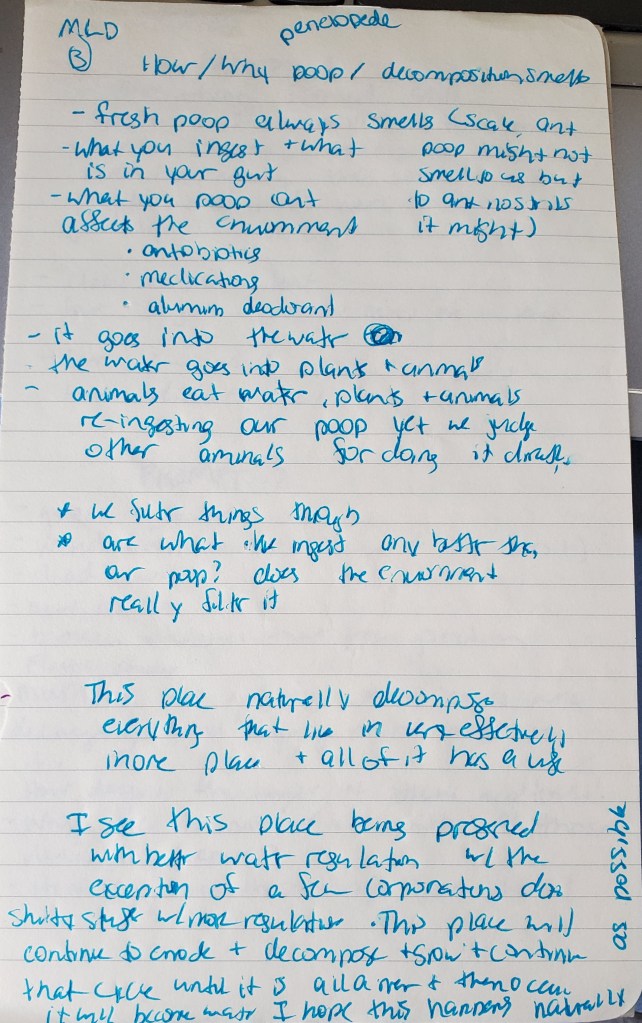 MLD
③
How/Why poop / decomposition smells
- fresh poop always smells (scale, ant
poop might not
smell to us but
to ant nostrils
it might)
- what you ingest + what
is in your gut
- what you poop out
affects the enviornment
• antobiotics
• medications
• alumim deodorant
- it goes into the watr
- the watr goes into plants + anmals
- animals eat watr, plants + animals
re-ingesting our poop yet we judge
other aminals for doing it
* we filtr things though
* are what we ingest any bettr
our poop? does the enviornment
really filtr it
This place naturally decompose
everything that live in very effectively
in one place + all of it has a use
I see this place being
with bettr watr regulation w/ the
exception of a few corporations
w/ more regulation. This place will
continue to erode + decompose + grow + continue
that cycle until it is all a river + then ocean
it will become watr I hope this happens naturally
as possible